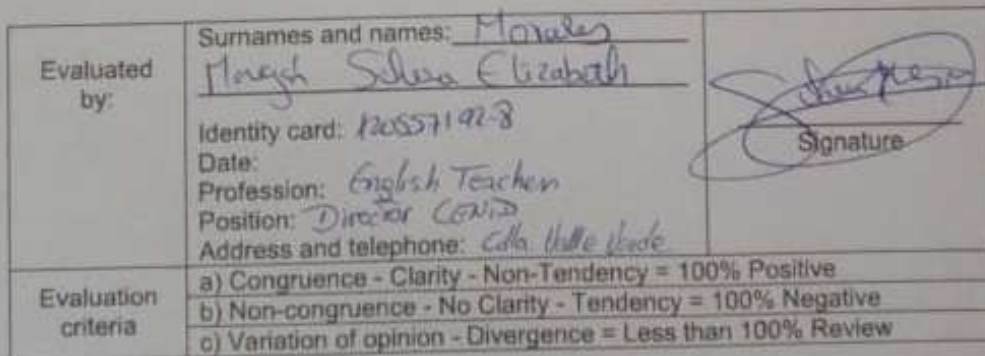 Evaluated by:
Surnames and names: Morales
Elizabeth
Identity card: 120557192-8
Date:
Profession: English Teacher
Position: Director CENID
Address and telephone: Cdla Valle Verde
Signature
Evaluation criteria
a) Congruence - Clarity - Non-Tendency = 100% Positive
b) Non-congruence - No Clarity - Tendency = 100% Negative
c) Variation of opinion - Divergence = Less than 100% Review